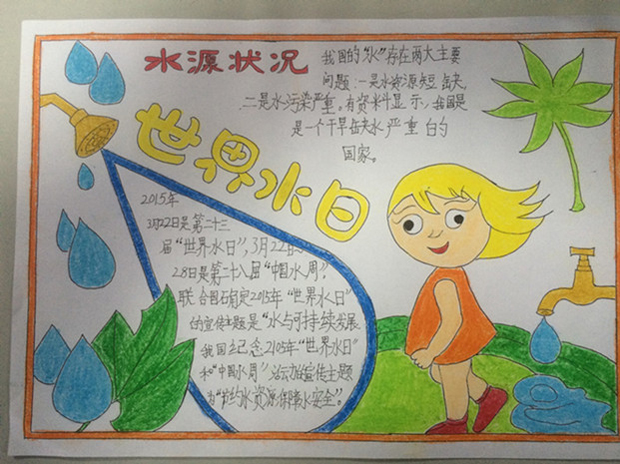 水源状况
我国的"水"存在两大主要
问题:一是水资源短缺,
二是水污染严重。有资料显示,我国是
是一个干旱缺水严重的
国家。
世界水日
2015年
3月22日是第二十三
届"世界水日",3月22日~
28日是第二十八届"中国水周"。
联合国确定2015年"世界水日"
的宣传主题是"水与可持续发展
我国纪念2105年"世界水日"
和"中国水周"活动的宣传主题
为"节约水资源,保障水安全"。